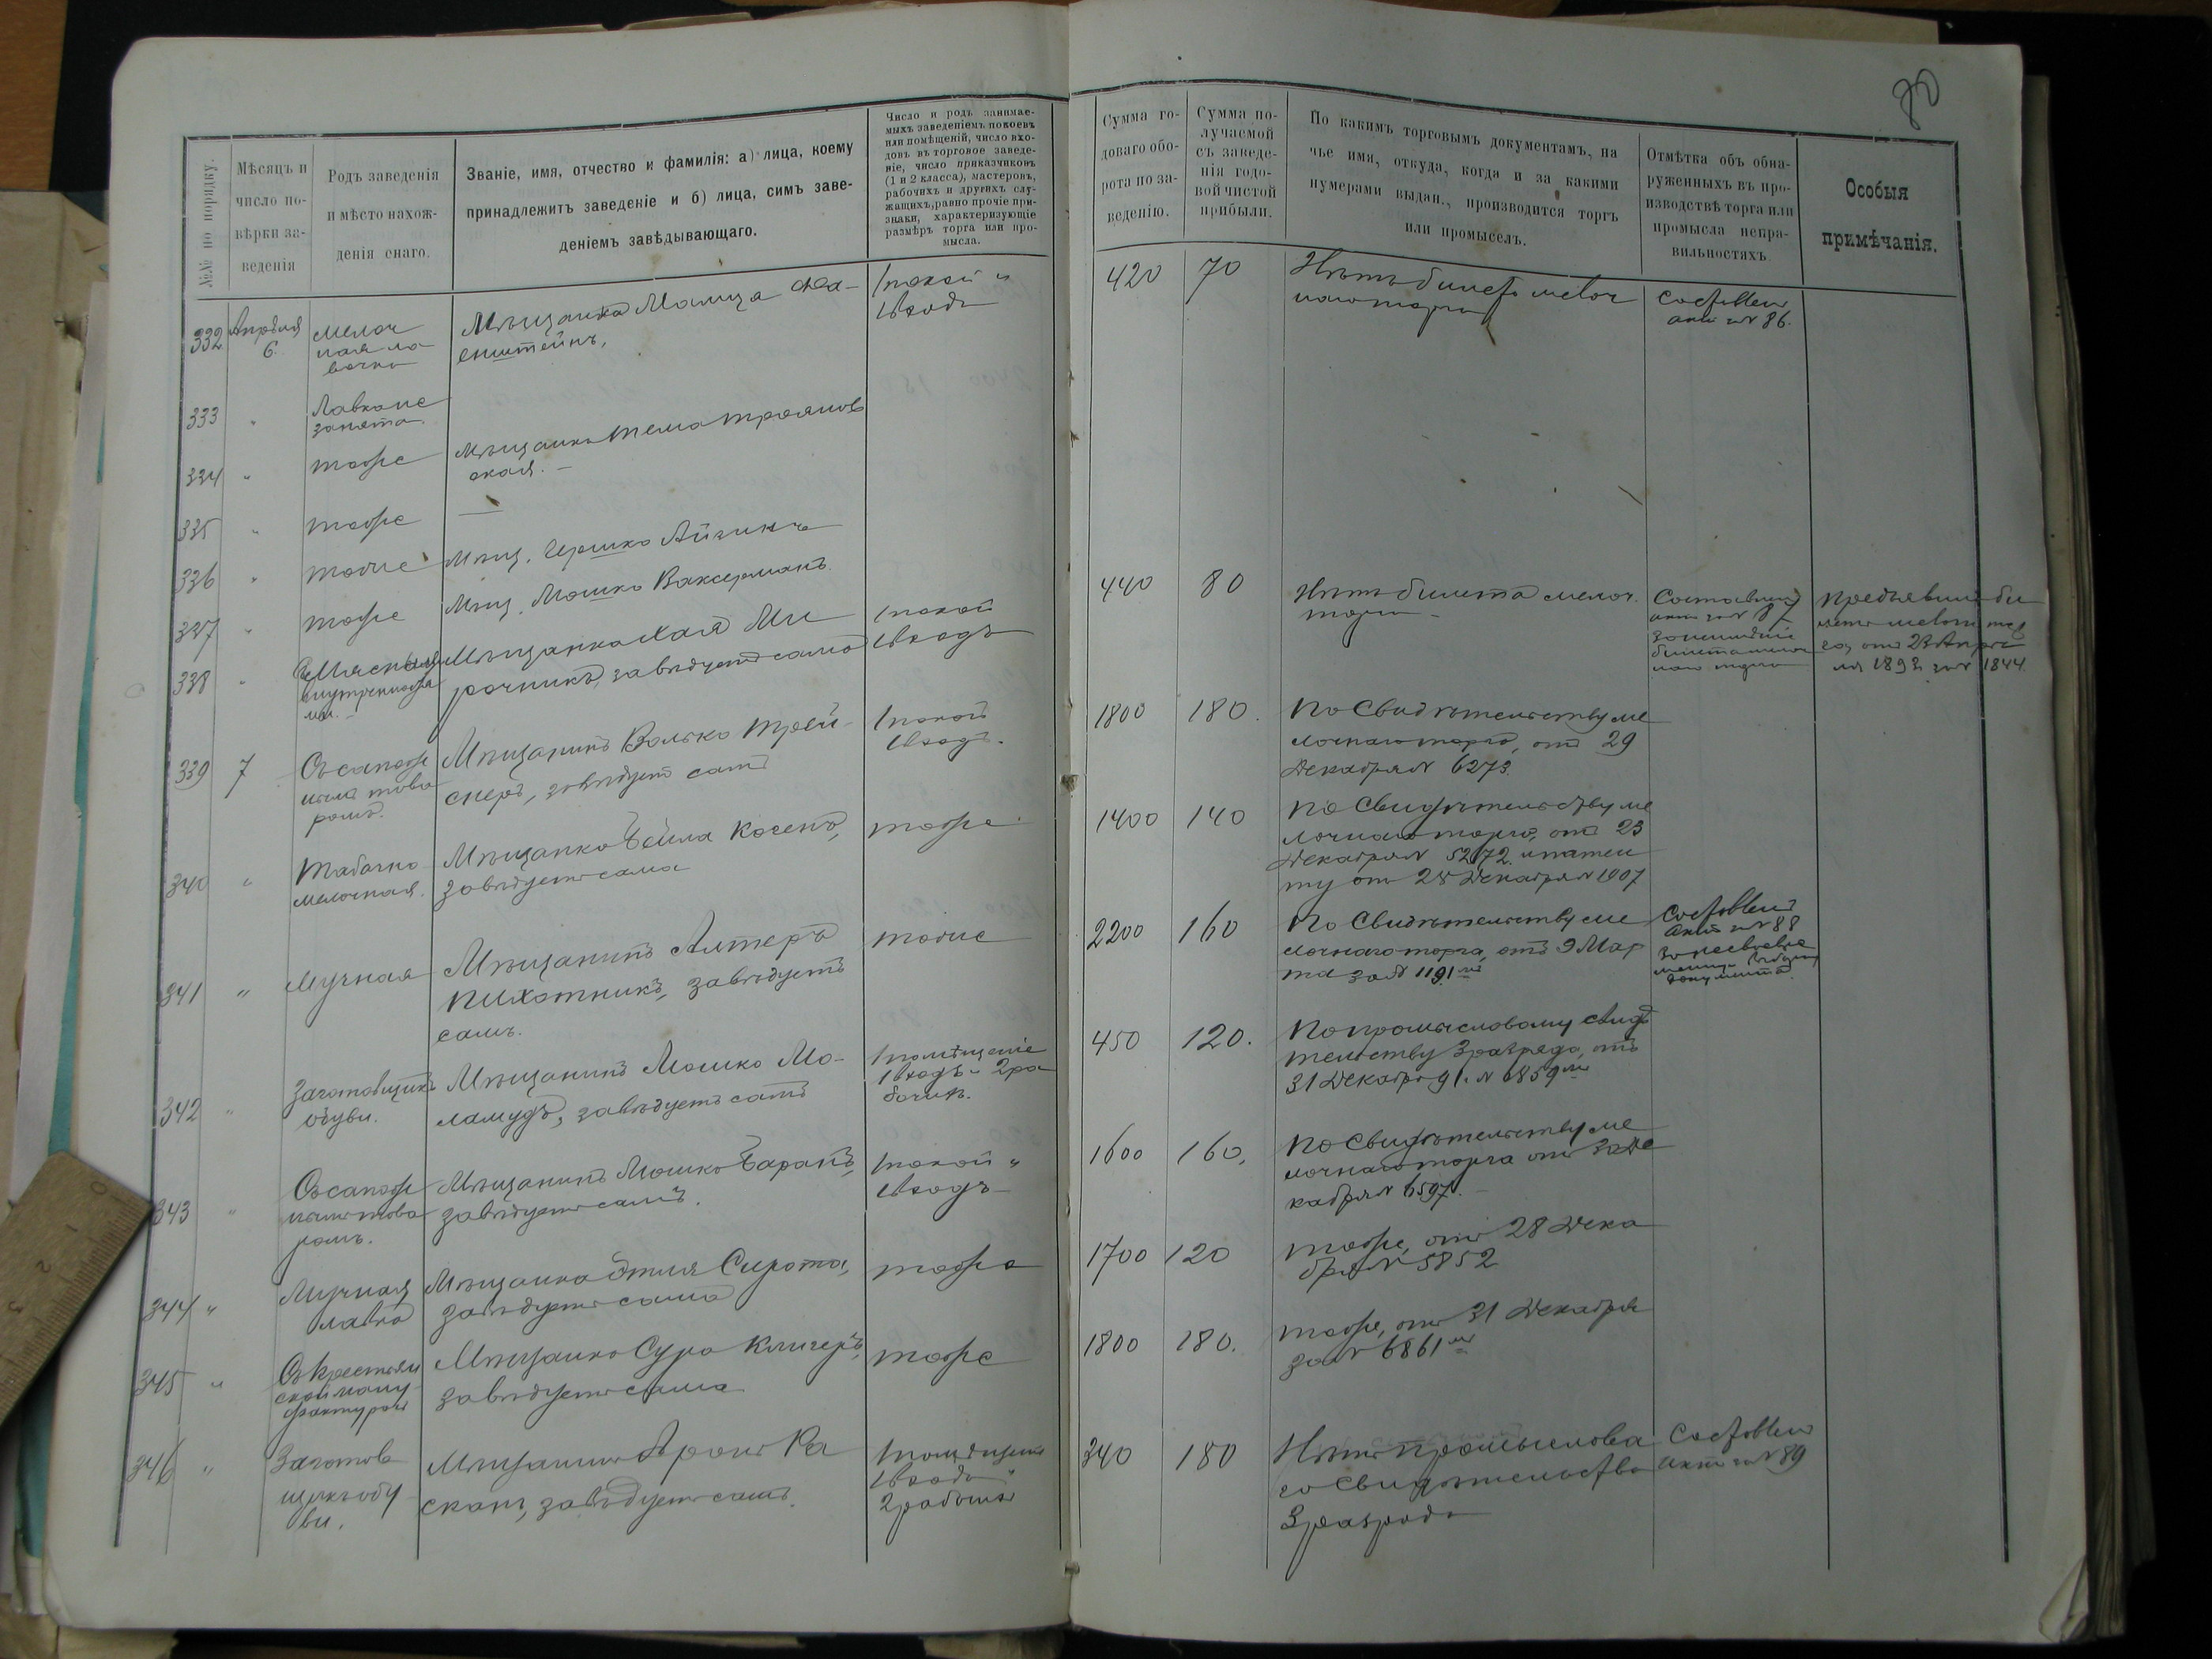 80
№№ по порядку.
Мѣсяцъ и
число по-
вѣрки за-
веденія
Родъ заведенія
и мѣсто нахож-
денія онаго.
Званіе, имя, отчество и фамилія: а) лица, коему
принадлежитъ заведеніе и б) лица, симъ заве-
деніемъ завѣдывающаго.
Число и родъ занимае-
мыхъ заведеніемъ покоевъ
или помѣщеній, число вхо-
довъ въ торговое заведе-
ніе, число приказчиковъ
(1 и 2 класса), мастеровъ,
рабочихъ и другихъ слу-
жащихъ, равно прочіе при-
знаки, характеризующіе
размѣръ торга или про-
мысла.
Сумма го-
доваго обо-
рота по за-
веденію.
Сумма по-
лучаемой
съ заведе-
нія годо-
вой чистой
прибыли.
По какимъ торговымъ документамъ, на
чье имя, откуда, когда и за какими
нумерами выдан., производится торгъ
или промыселъ.
Отмѣтка объ обна-
руженныхъ въ про-
изводствѣ торга или
промысла непра-
вильностяхъ.
Особыя
примѣчанія.
332
Апрѣля
6.
Мелоч
ная ла
вочка
Мѣщанка Малица
енштейнъ,
1 покой и
1 входъ
420
70
Нѣтъ билета мелоч
наго торга
Составленъ
актъ за № 86.
333
"
Лавка не
занята
334
"
тоже
Мѣщанка Тема Троянов
ская. —
335
"
тоже
—
336
"
тоже
Мѣщ. Гершко Айзикъ
337
"
тоже
Мѣщ. Мошко Ваксерманъ.
338
"
Съ Мясными
внутренностя
ми. —
Мѣщанка Хая Ми
рочникъ, завѣдуетъ сама
1 покой
1 входъ
440
80
Нѣтъ билета мелоч.
торга —
Составленъ
актъ за № 87
за неимѣніе
билета мелоч
наго торга
Предъявилъ би
летъ мелоч. тор
га, отъ 23 Апрѣ
ля 1892 за № 1844.
339
7
Съ сапож
нымъ това
ромъ.
Мѣщанинъ Волько Трей-
серъ, завѣдуетъ самъ
1 покой
1 входъ.
1800
180.
По Свидѣтельству ме
лочнаго торга, отъ 29
Декабря № 6273.
340
"
Табачно
мелочная.
Мѣщанка Бейла Косенъ,
завѣдуетъ сама
тоже
1400
140
По Свидѣтельству ме
лочнаго торга, отъ 23
Декабря № 5272 и патен
ту отъ 28 Декабря № 1907
341
"
Мучная
Мѣщанинъ Алтеръ
Пихотникъ, завѣдуетъ
самъ.
тоже
2200
160
По Свидѣтельству ме
лочнаго торга, отъ 9 Мар
та за № 1191
Составленъ
актъ за № 88
за несвоевре
документа.
342
"
Заготовщикъ
обуви.
Мѣщанинъ Мошко Мо-
ламудъ, завѣдуетъ самъ
1 помѣщеніе
1 входъ и 2 ра
бочихъ.
450
120.
По промысловому свидѣ
тельству 3 разряда, отъ
31 Декабря 91 г. № 6859
343
"
Съ сапож
нымъ това
ромъ.
Мѣщанинъ Мошко Баракъ,
завѣдуетъ самъ.
1 покой и
1 входъ
1600
160.
По Свидѣтельству ме
лочнаго торга отъ 30 Де
кабря № 6597. —
344
"
Мучная
лавка
Мѣщанка Этля Сирота,
завѣдуетъ сама
тоже
1700
120
тоже, отъ 28 Дека
бря № 5852
345
"
Съ крестьян
ской ману-
фактурой
Мѣщанка Сура Кличеръ,
завѣдуетъ сама
тоже
1800
180.
тоже, отъ 31 Декабря
за № 6861
346
"
Заготов
щикъ обу-
ви.
Мѣщанинъ Аронъ Ра
сканъ, завѣдуетъ самъ.
1 помѣщеніе
1 входъ и
2 рабочихъ
340
180
Нѣтъ промыслова
го Свидѣтельства
3 разряда
Составленъ
актъ за № 89
0
1
2
3